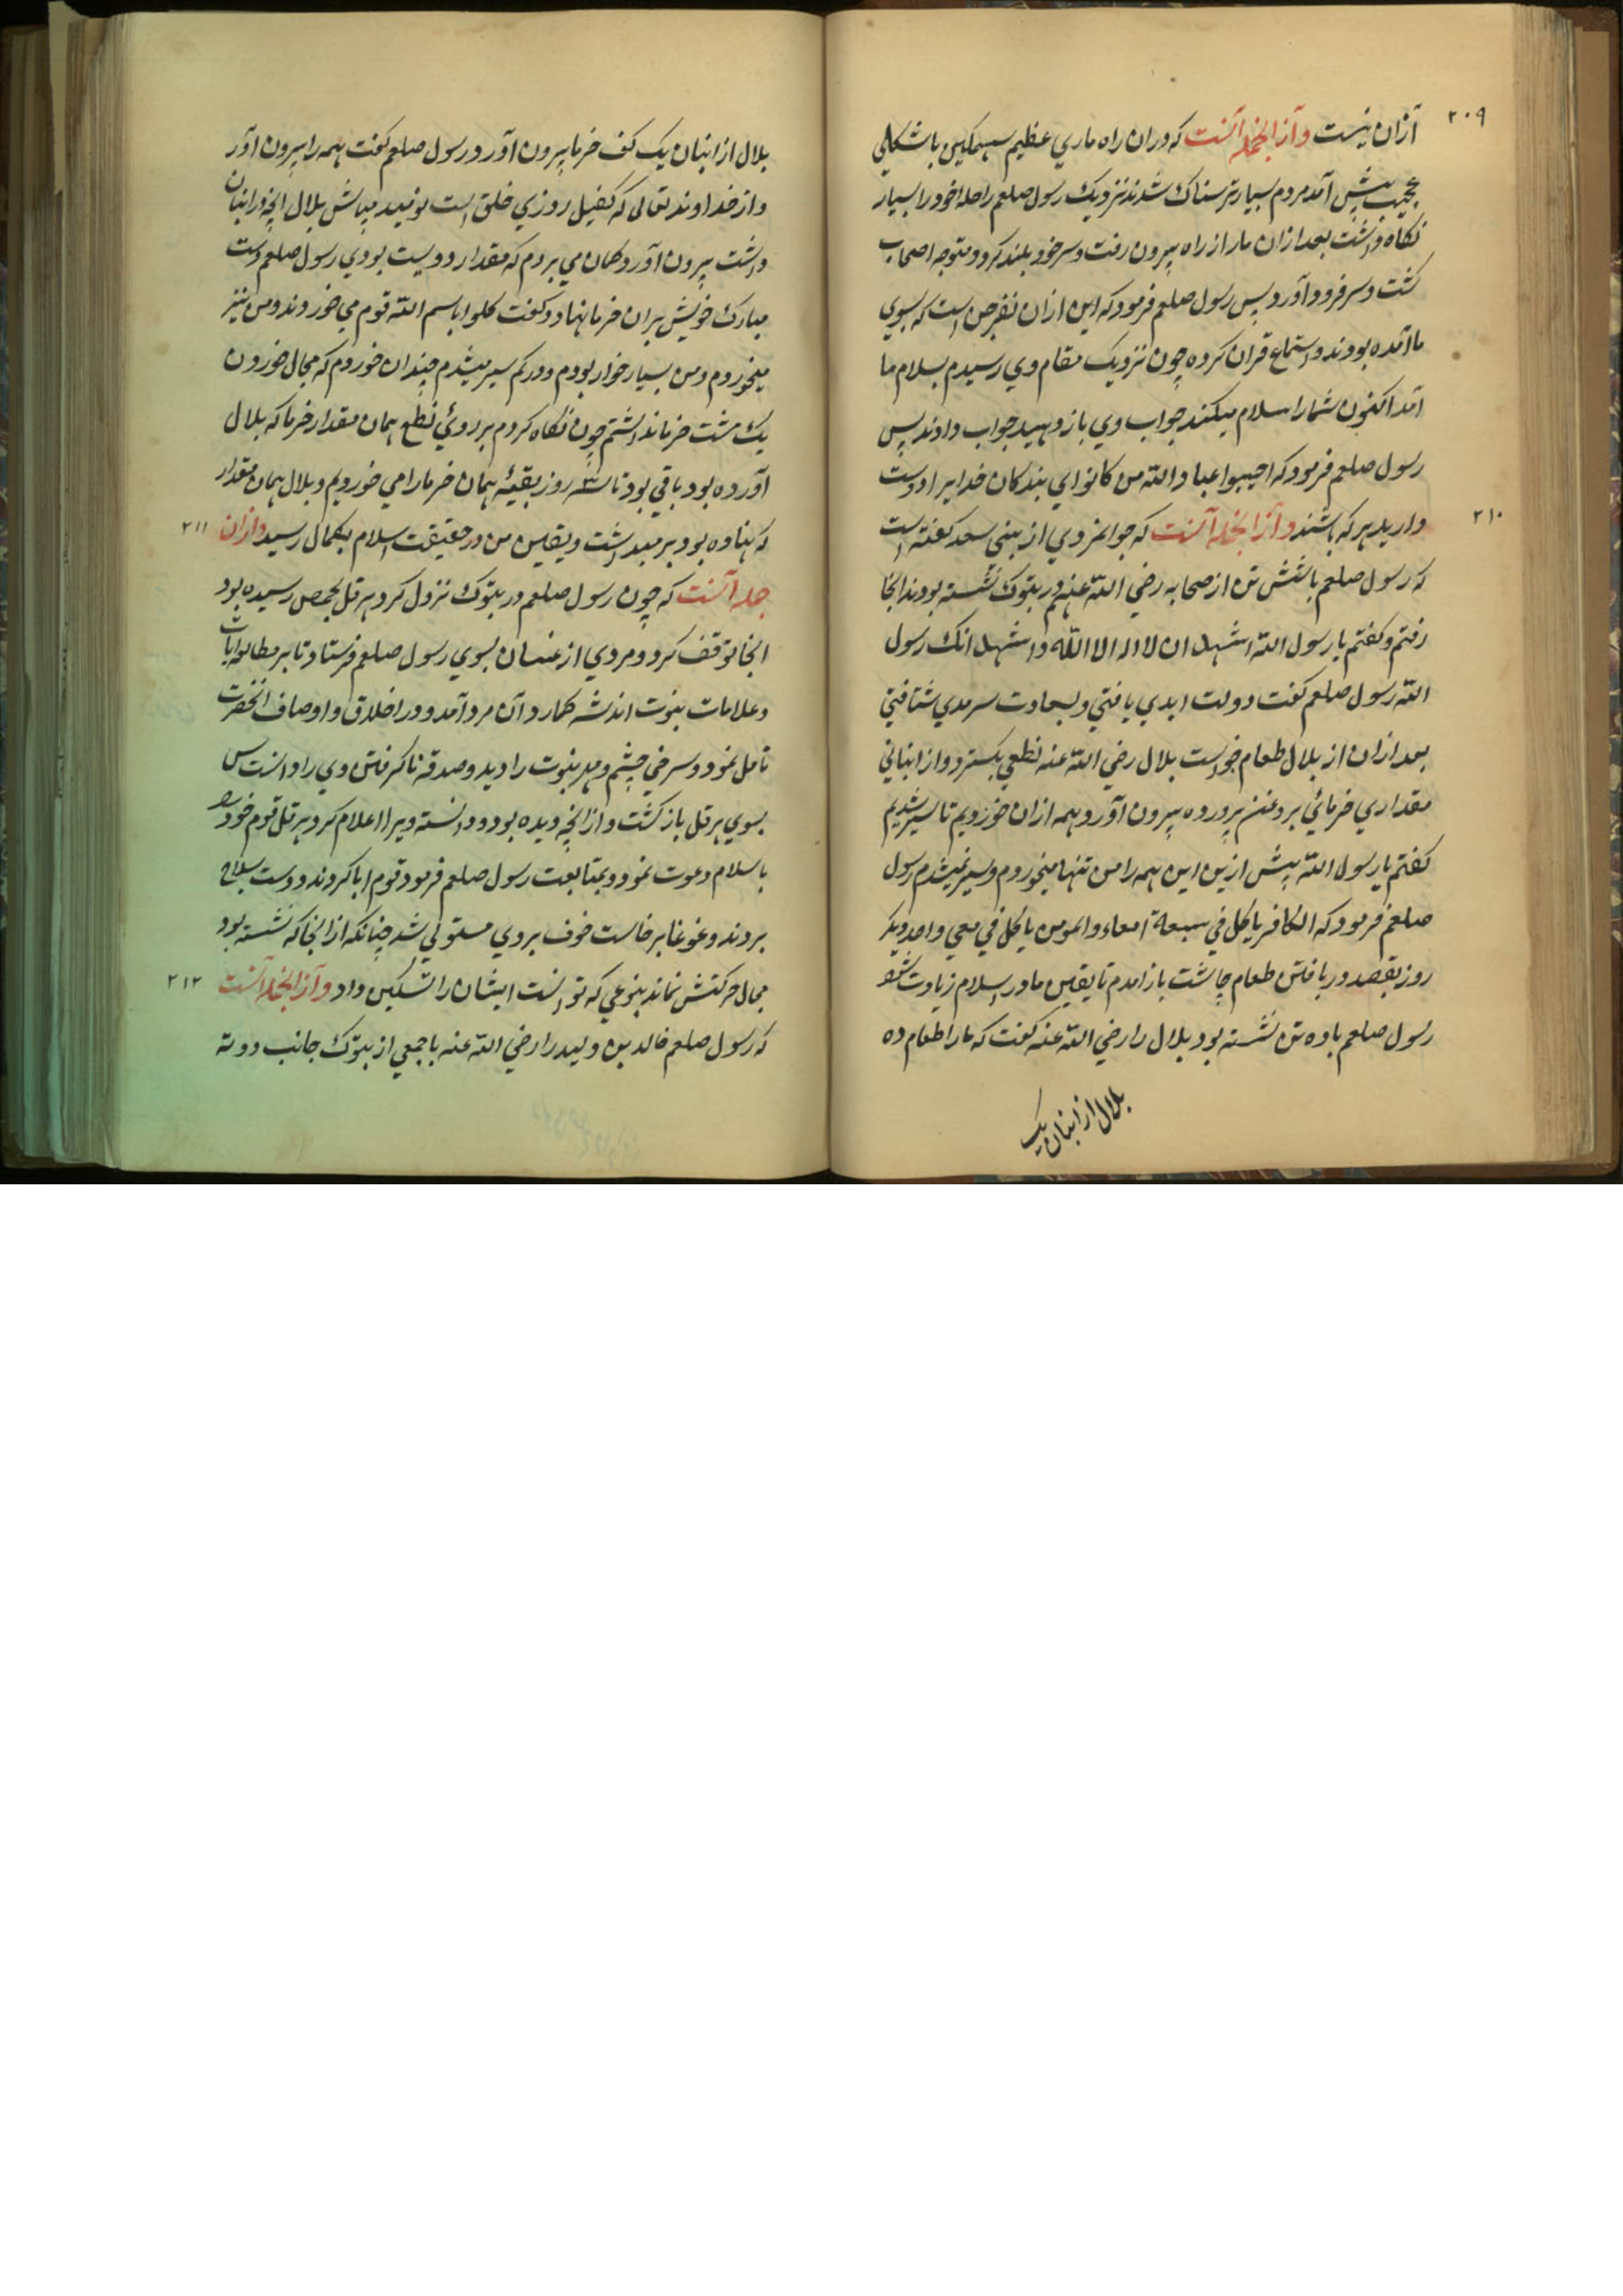 ۲۰۹
ازان نیست وازانجمله آنست که دران راه ماری عظیم سهمکین باشکلی
عجیب پیش آمد مردم بسیار ترسناک شدند نزدیک رسول صلعم راحلهٔ خود را بسیار
نکاه داشت بعد ازان مار از راه بیرون رفت و سر خود بلند کرد و متوجه اصحاب
کشت و سر فرود آورد پس رسول صلعم فرمود که این ازان نفر جن است که بسوی
ما آمده بودند و استماع قران کرده چون نزدیک مقام وی رسیدم بسلام ما
آمد اکنون شما را سلام میکند جواب وی باز دهید جواب دادند پس
رسول صلعم فرمود که اجیبوا عباد الله من کانوا ای بندکان خدایرا دوست
۲۱۰
دارید هر که باشند وازانجمله آنست که جوانمردی از بنی سعد کفته است
که رسول صلعم با شش تن از صحابه رضی الله عنهم در بتوک نشسته بودند انجا
رفتم و کفتم یا رسول الله اشهد ان لا اله الا الله و اشهد انک رسول
الله رسول صلعم کفت دولت ابدی یافتی و بسعادت سرمدی شتافتی
بعد ازان از بلال طعام خواست بلال رضی الله عنه نطعی بکسترد و از انبانی
مقداری خرمائی بروغن پرورده بیرون آورد همه ازان خوردیم تا سیر شدیم
کفتم یا رسول الله پیش ازین این همه را من تنها میخوردم و سیر نمیشدم رسول
صلعم فرمود که الکافر یاکل فی سبعة امعاء والمومن یاکل فی معی واحد دیکر
روز بقصد دریافتن طعام چاشت باز امدم تا یقین ما در اسلام زیادت شود
رسول صلعم با ده تن نشسته بود بلال را رضی الله عنه کفت که ما را طعام ده
بلال از انبان یک
بلال از انبان یک کف خرما بیرون آورد رسول صلعم کفت همه را بیرون آور
و از خداوند تعالی که کفیل روزی خلق است نومید مباش بلال انچه در انبان
داشت بیرون آورد کمان می بردم که مقدار دو بیست بودی رسول صلعم دست
مبارک خویش بران خرما نهاد و کفت کلوا باسم الله قوم می خوردند و من نیز
میخوردم و من بسیار خوار بودم و در کم سیر میشدم چندان خوردم که مجال خوردن
یک مشت خرما نداشتم چون نکاه کردم بر روی نطع همان مقدار خرما که بلال
آورده بود باقی بود تا سه روز بقیهٔ همان خرما را می خوردیم و بلال همان مقدار
۲۱۱
که نهاده بود بر میداشت و یقین من در حقیقت اسلام بکمال رسید وازان
جمله آنست که چون رسول صلعم در بتوک نزول کرد هرقل بحمص رسیده بود
انجا توقف کرد و مردی از غسان بسوی رسول صلعم فرستاد تا بر مطالعه ایات
و علامات نبوت اندیشه کمارد آن مرد آمد و در اخلاق و اوصاف انحضرت
تامل نمود و سرخی چشم و مهر نبوت را دید و صدقه ناکرفتن وی را دانست پس
بسوی هرقل باز کشت و از انچه دیده بود و دانسته ویرا اعلام کرد هرقل قوم خود را
باسلام دعوت نمود و بمتابعت رسول صلعم فرمود قوم ابا کردند و دست بسلاح
بردند و غوغا برخاست خوف بروی مستولی شد چنانکه از انجا که نشسته بود
۲۱۲
مجال حرکتش نماند بنوعی که توانست ایشان را تسکین داد وازانجمله آنست
که رسول صلعم خالد بن ولید را رضی الله عنه با جمعی از بتوک جانب دومة